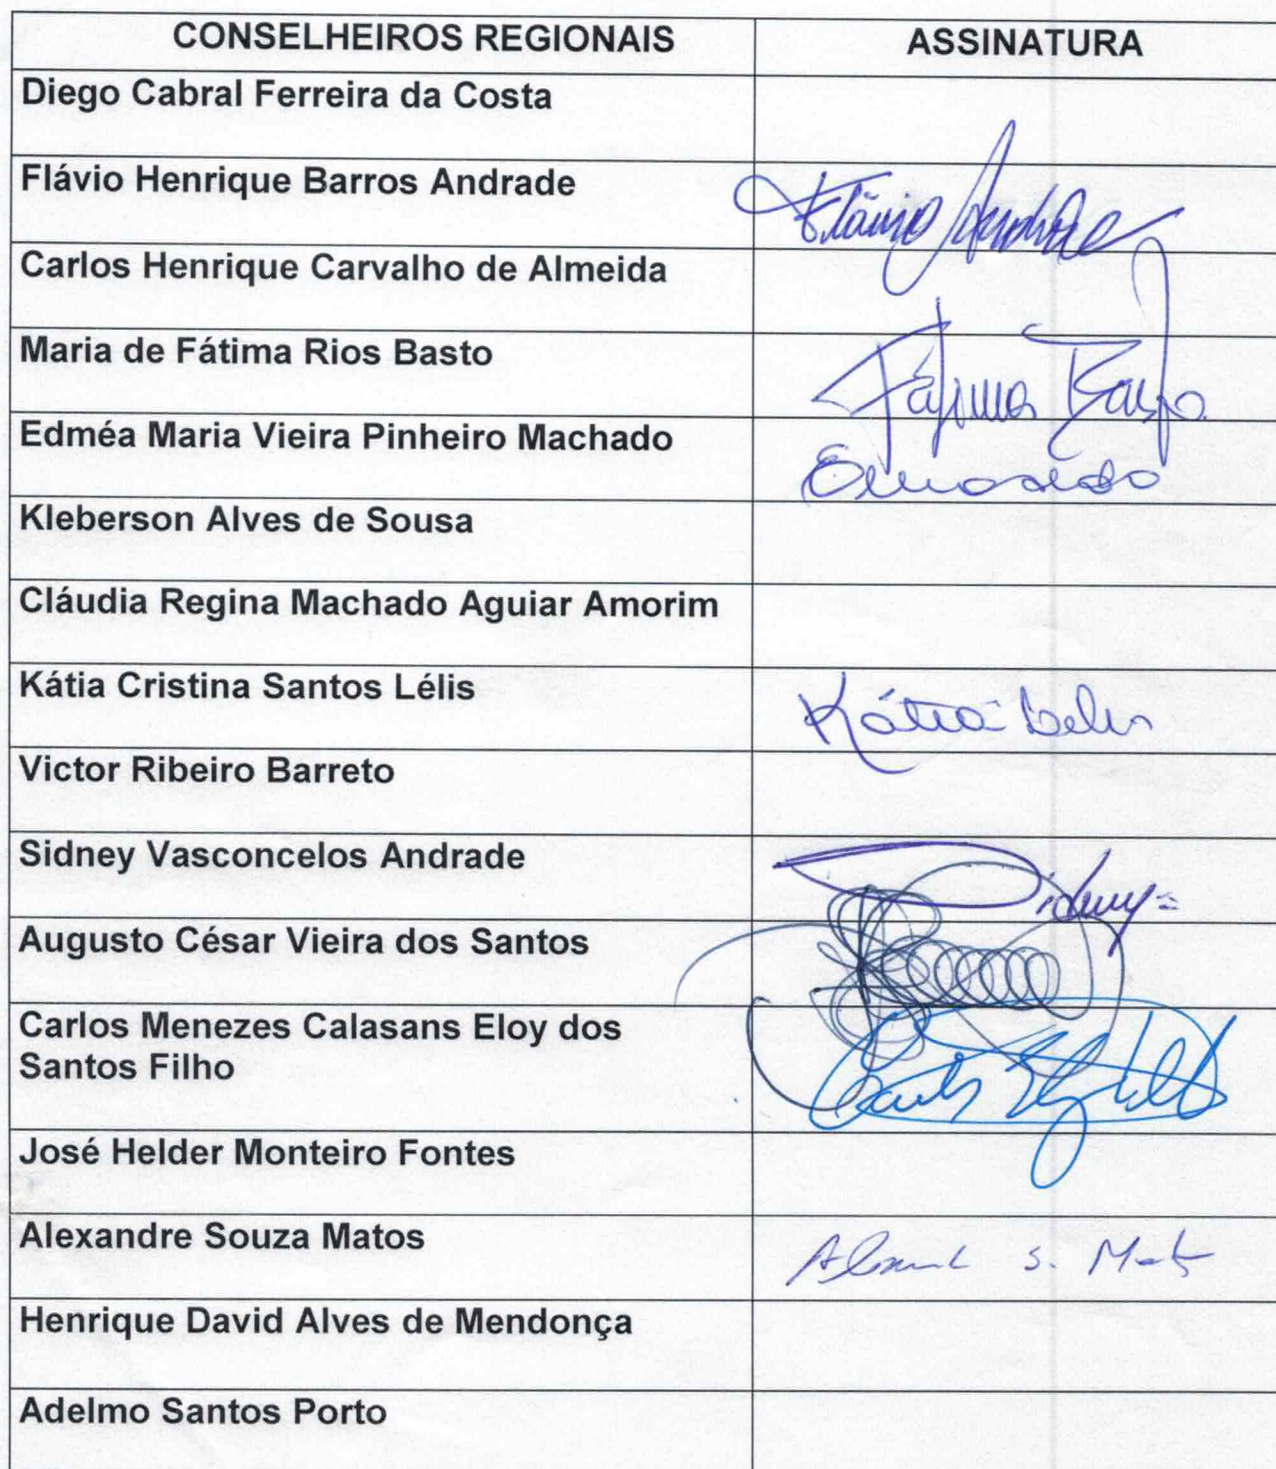 CONSELHEIROS REGIONAIS ASSINATURA
Diego Cabral Ferreira da Costa
Flávio Henrique Barros Andrade Flávio Andrade
Carlos Henrique Carvalho de Almeida
Maria de Fátima Rios Basto Fátima Basto
Edméa Maria Vieira Pinheiro Machado
Kleberson Alves de Sousa
Cláudia Regina Machado Aguiar Amorim
Kátia Cristina Santos Lélis Kátia Lelis
Victor Ribeiro Barreto
Sidney Vasconcelos Andrade Sidney
Augusto César Vieira dos Santos
Carlos Menezes Calasans Eloy dos
Santos Filho
José Helder Monteiro Fontes
Alexandre Souza Matos S.
Henrique David Alves de Mendonça
Adelmo Santos Porto